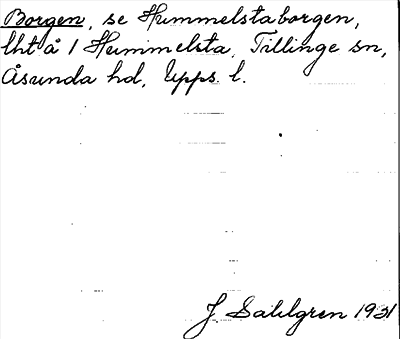 Borgen, se Hummelstaborgen,
lht å 1 Hummelsta, Tillinge sn,
Åsunda hd, Upps. l.
J Sahlgren 1931